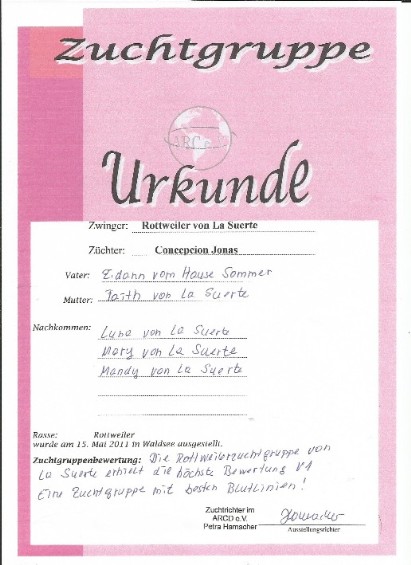 Zuchtgruppe
ARC e.V.
Urkunde
Zwinger: Rottweiler von La Suerte
Züchter: Concepcion Jonas
Vater: Zidann vom Hause Sommer
Mutter: Faith von La Suerte
Nachkommen: Luna von La Suerte
Mary von La Suerte
Mandy von La Suerte
Rasse: Rottweiler
wurde am 15. Mai 2011 in Waldsee ausgestellt.
Zuchtgruppenbewertung: Die Rottweilerzuchtgruppe von
La Suerte erhielt die höchste Bewertung V1
Eine Zuchtgruppe mit besten Blutlinien!
Zuchtrichter im
ARCD e.V.
Petra Hamscher
Ausstellungsrichter